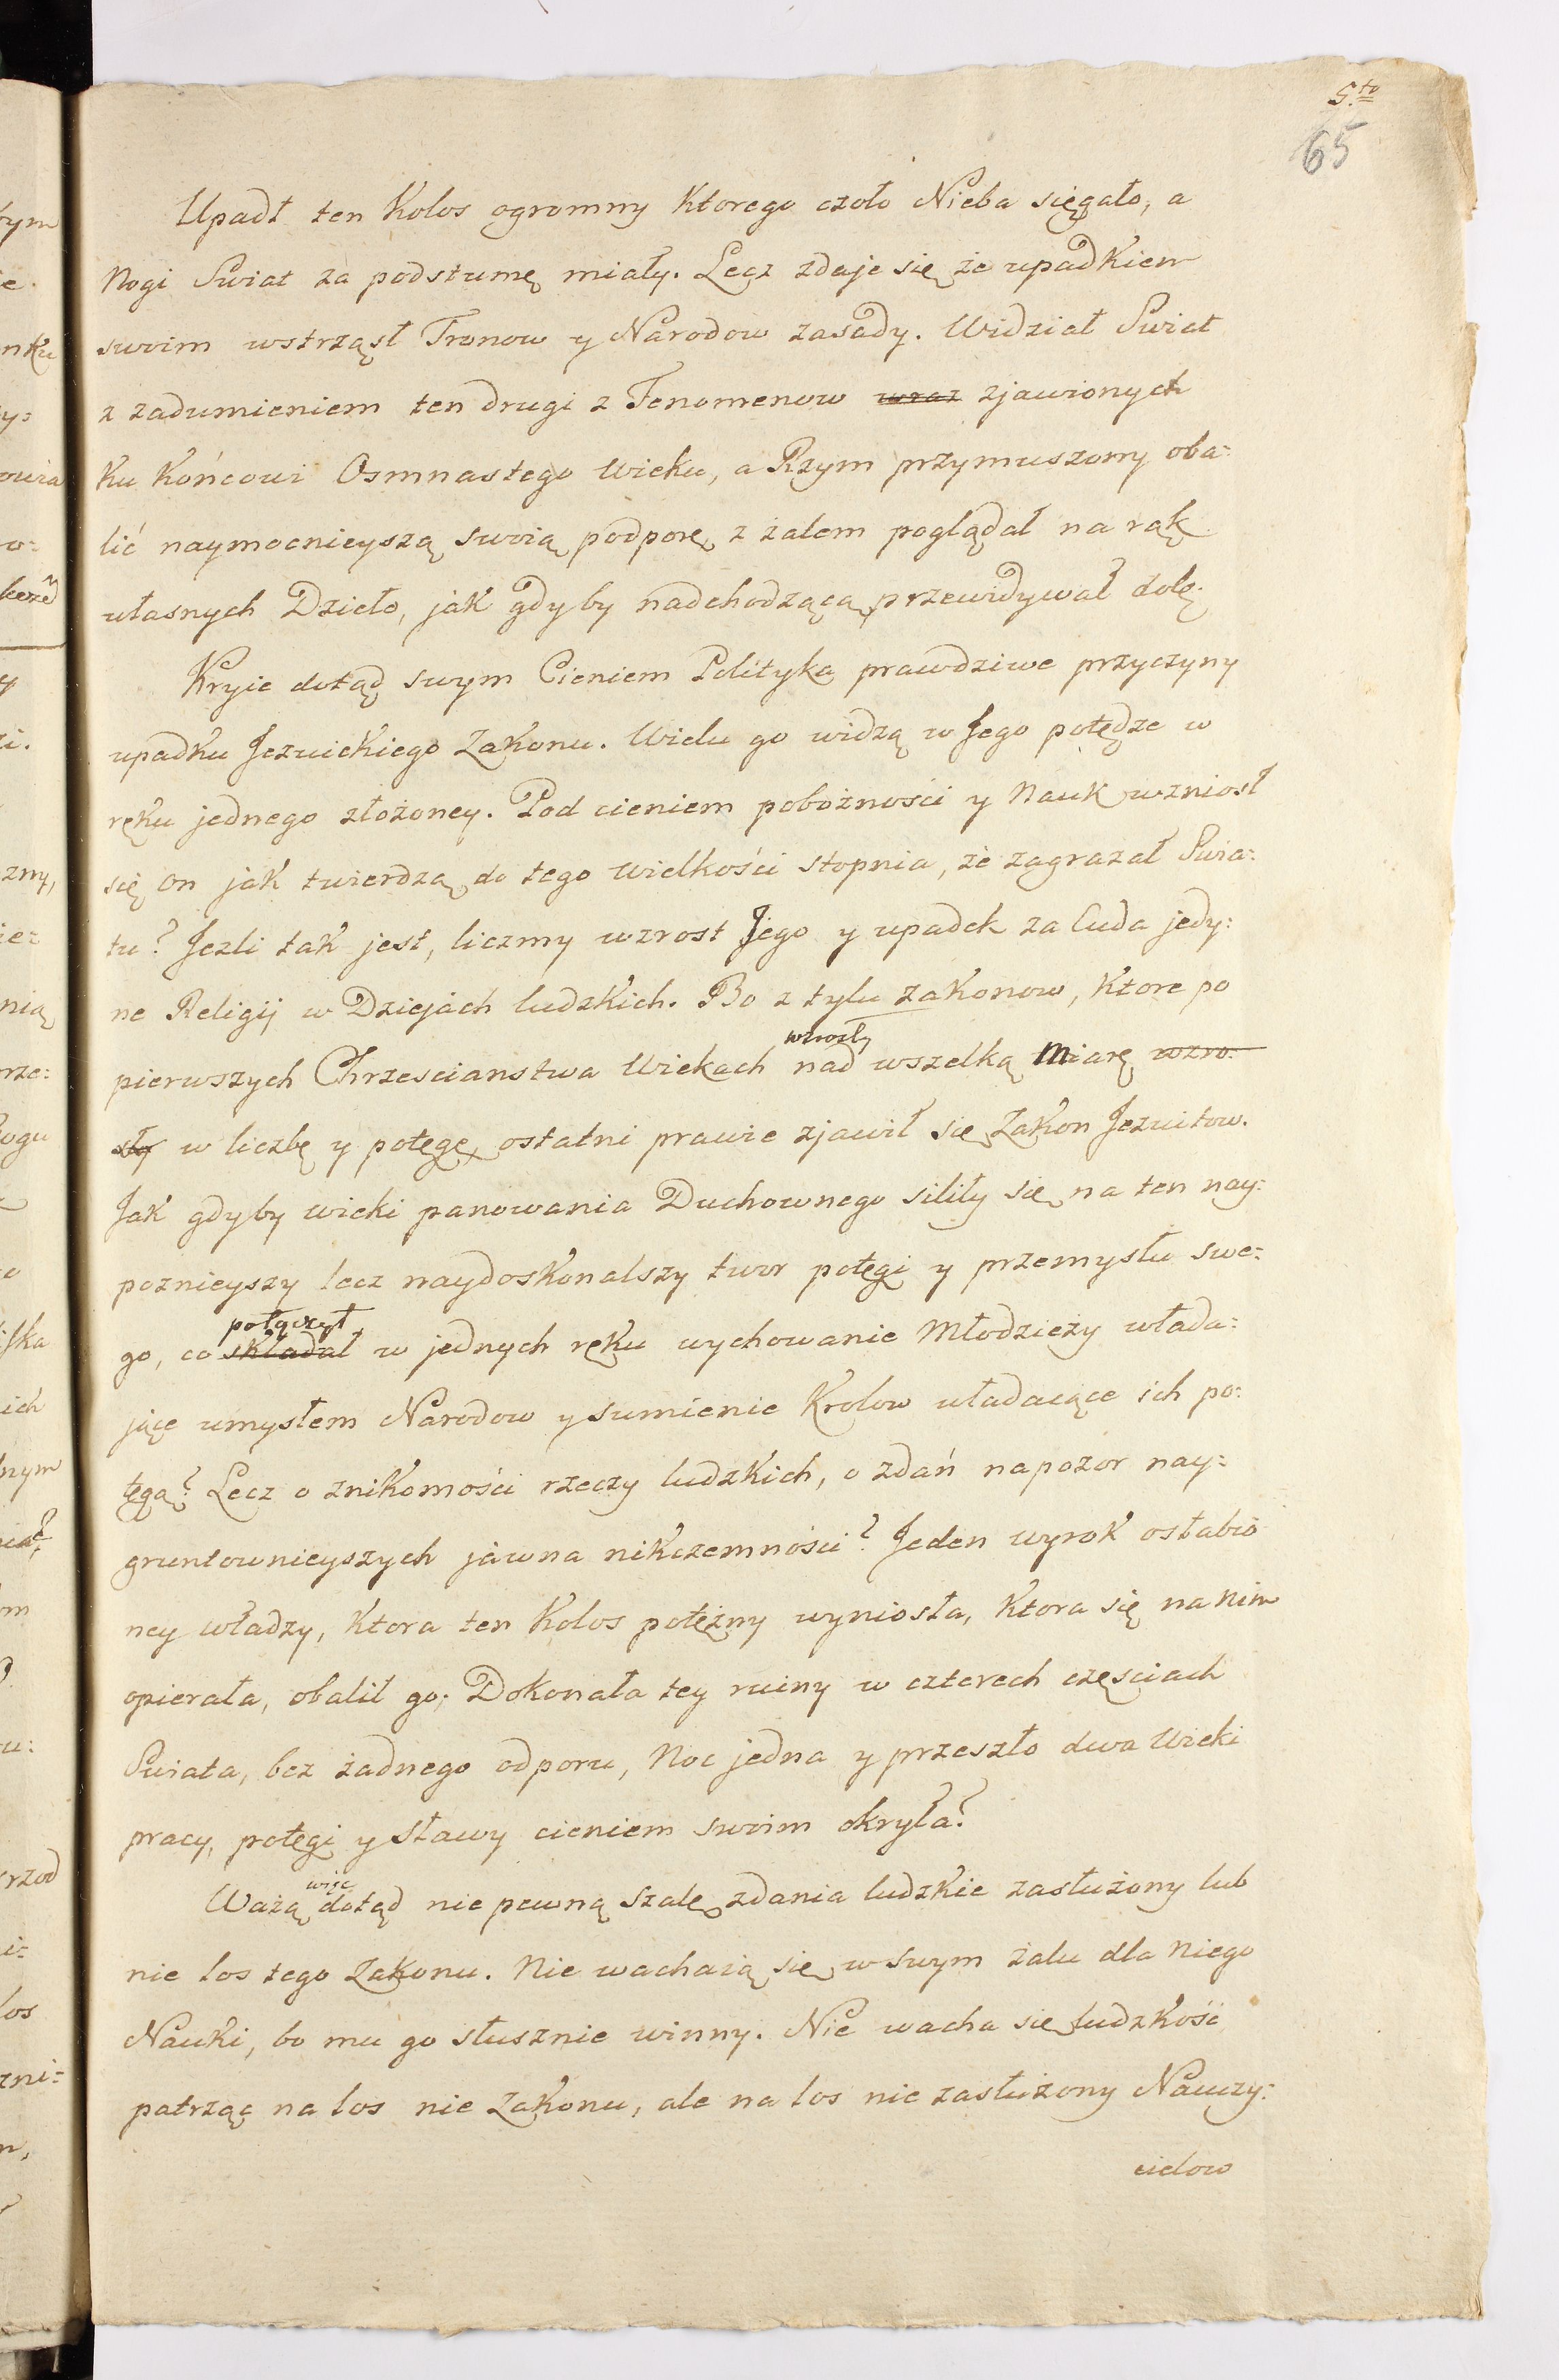 5.to
65
Upadł ten Kolos ogromny Ktorego czoło Nieba sięgało, a
Nogi Swiat za podstumę miały. Lecz zdaje się że upadkiem
swoim wstrząsł Tronow y Narodow zasady. Widział Swiat
z zadumieniem ten drugi z Fenomenow wraz zjawionych
Ku Końcowi Osmnastego Wieku, a Rzym przymuszony oba=
lić naymocnieyszą swoią podporę, z żalem poglądał na rąk
własnych Dzieło, jak gdyby nadchodzącą przewidywał dolę.
Kryie dotąd swym Cieniem Polityka prawdziwe przyczyny
upadku Jezuickiego Zakonu. Wielu go widzą w Jego potędze w
ręku jednego złożoney. Pod cieniem pobożności y Nauk wzniosł
się on jak twierdzą do tego wielkości stopnia, że zagrazał Swia=
tu? Jezli tak jest, liczmy wzrost Jego y upadek za Cuda jedy=
ne Religij w Dziejach ludzkich. Bo z tylu zakonow, Ktore po
wzrosły
pierwszych Chrzescianstwa Wiekach nad wszelką Miarę wzro=
sły w liczbę y potęgę, ostatni prawie zjawił się Zakon Jezuitow.
Jak gdyby wieki panowania Duchownego siliły się na ten nay=
poznieyszy lecz naydoskonalszy twor potęgi y przemysłu swe=
połączył
go, co składał w jednych ręku wychowanie Młodzieży włada=
jące umysłem Narodow y sumienie Krolow władaiące ich po=
tęgą? Lecz o znikomości rzeczy ludzkich, o zdań napozor nay=
gruntownieyszych jawna nikczemności? Jeden wyrok osłabio
ney władzy, Ktora ten Kolos potężny wyniosła, Ktora się na nim
opierała, obalił go; Dokonała tey ruiny w czterech częściach
Swiata, bez żadnego odporu, Noc jedna y przeszło dwa Wieki
pracy, potęgi y sławy cieniem swoim okryła?
więc
Ważą dotąd nie pewną szalę zdania ludzkie zasłużony lub
nie los tego Zakonu. Nie wachaią się w swym żalu dla niego
Nauki, bo mu go słusznie winny. Nie wacha się ludzkość
patrząc na los nie Zakonu, ale na los nie zasłużony Nauczy=
cielow